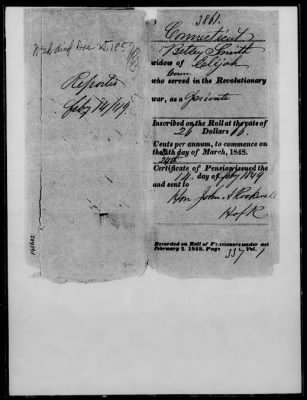 3861.
Connecticut
Betsy Smith
widow of Elijah
Conn.
who served in the Revolutionary
war, as a Private
Inscribed on the Roll at the rate of
26 Dollars 16.
Cents per annum, to commence on
the 4th day of March, 1848.
Certificate of Pension issued the
14 day of feby 1849
and sent to
Hon John A Rockwell
H of R
Recorded on Roll of Pensioners under act
February 2, 1848. Page 337 Vol. 1
Reported
feby 14/49